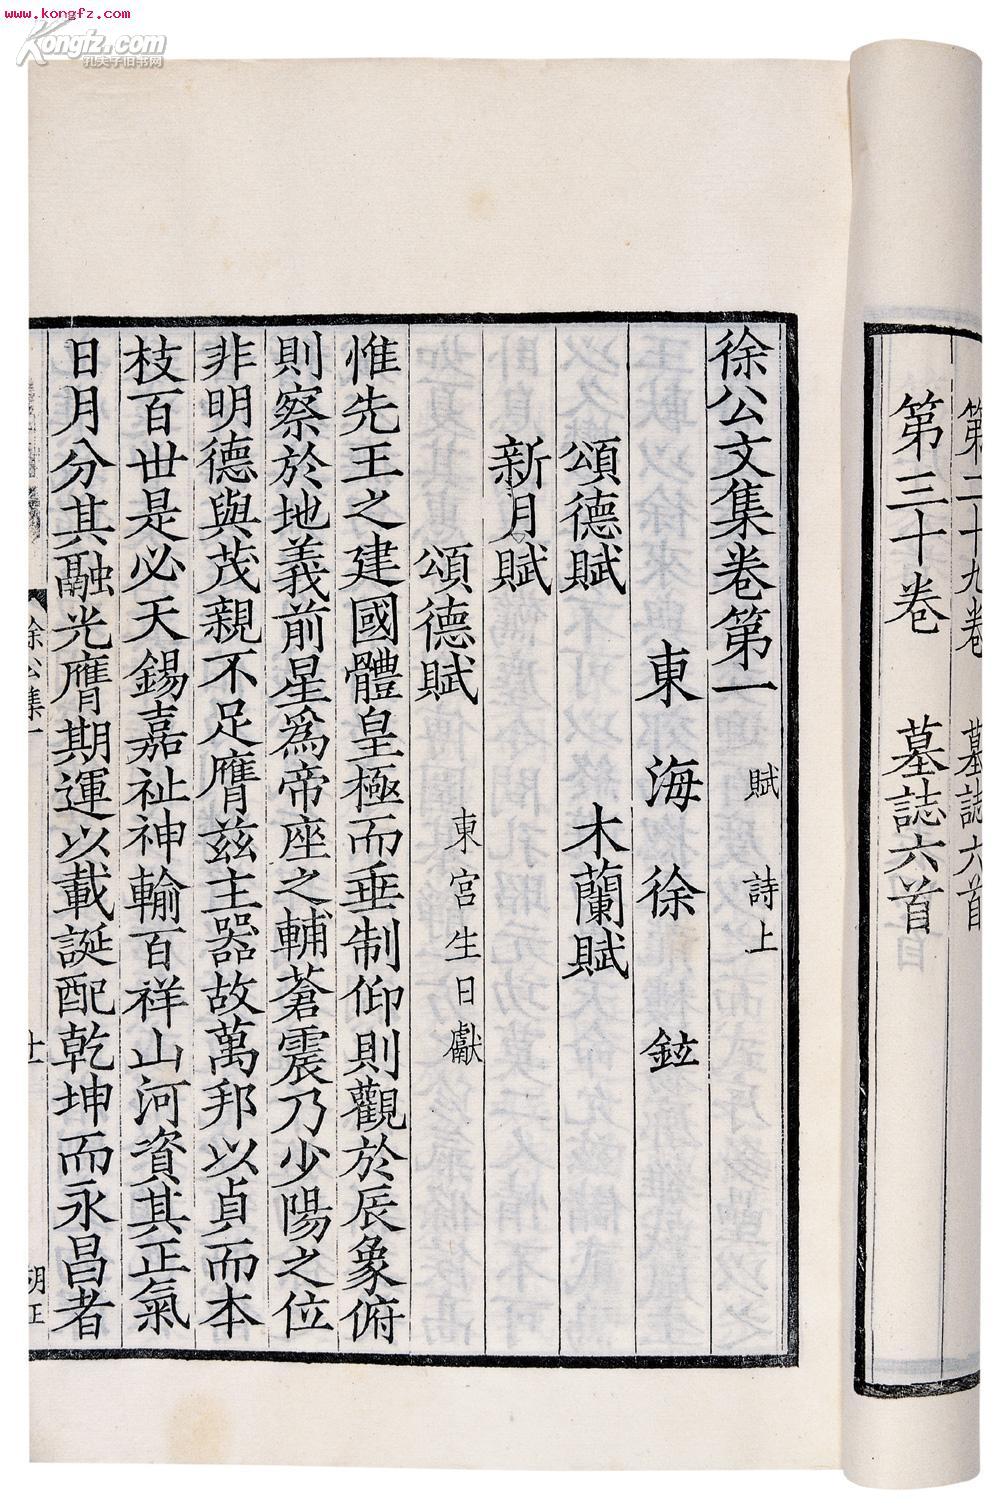 www.kongfz.com
Kongfz.com
孔夫子旧书网
第二十九卷　墓誌六首
第三十卷　墓誌六首
徐公文集卷第一　賦　詩上
東海徐鉉
頌德賦　木蘭賦
新月賦
頌德賦　東宮生日獻
惟先王之建國體皇極而垂制仰則觀於辰象俯
則察於地義前星爲帝座之輔蒼震乃少陽之位
非明德與茂親不足膺茲主器故萬邦以貞而本
枝百世是必天錫嘉祉神輸百祥山河資其正氣
日月分其融光膺期運以載誕配乾坤而永昌者
徐公集一